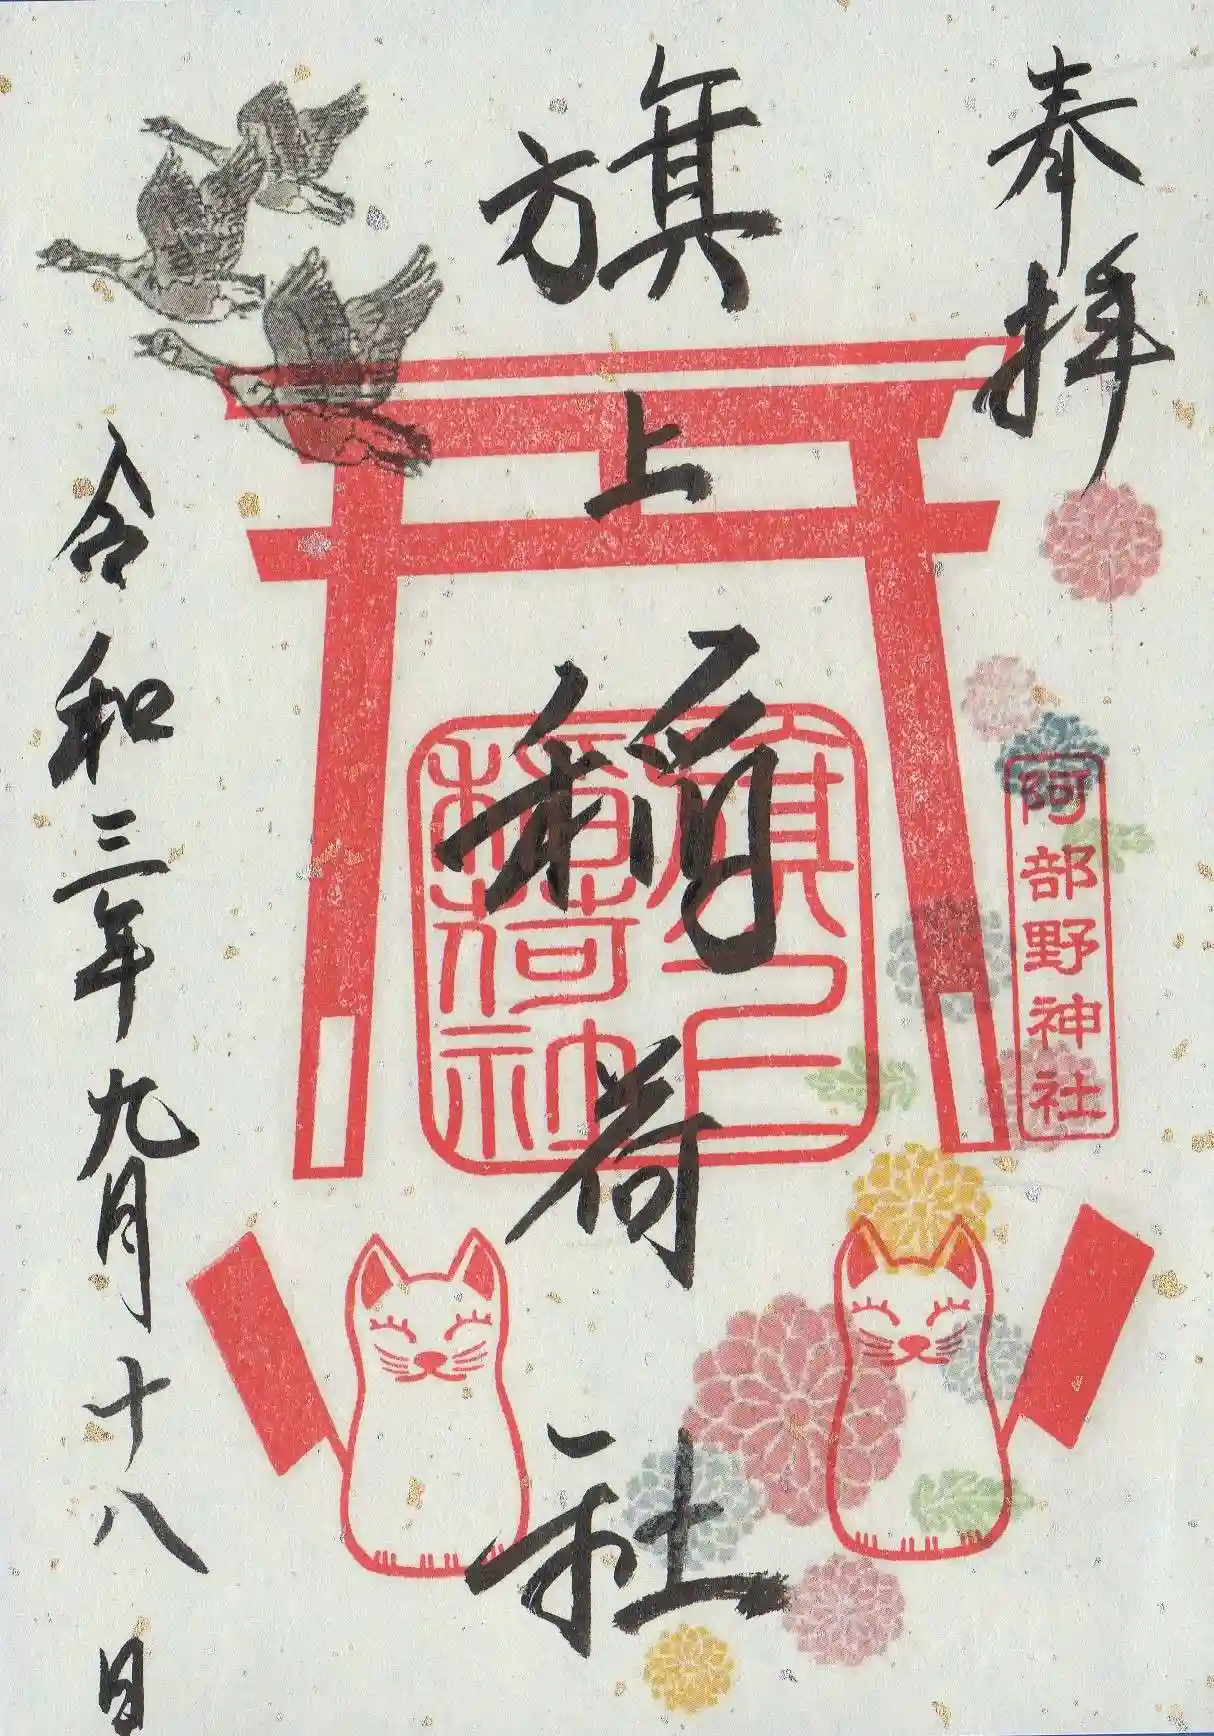 奉拝
阿部野神社
旗上稲荷社
旗上
稲荷社
令和三年九月十八日